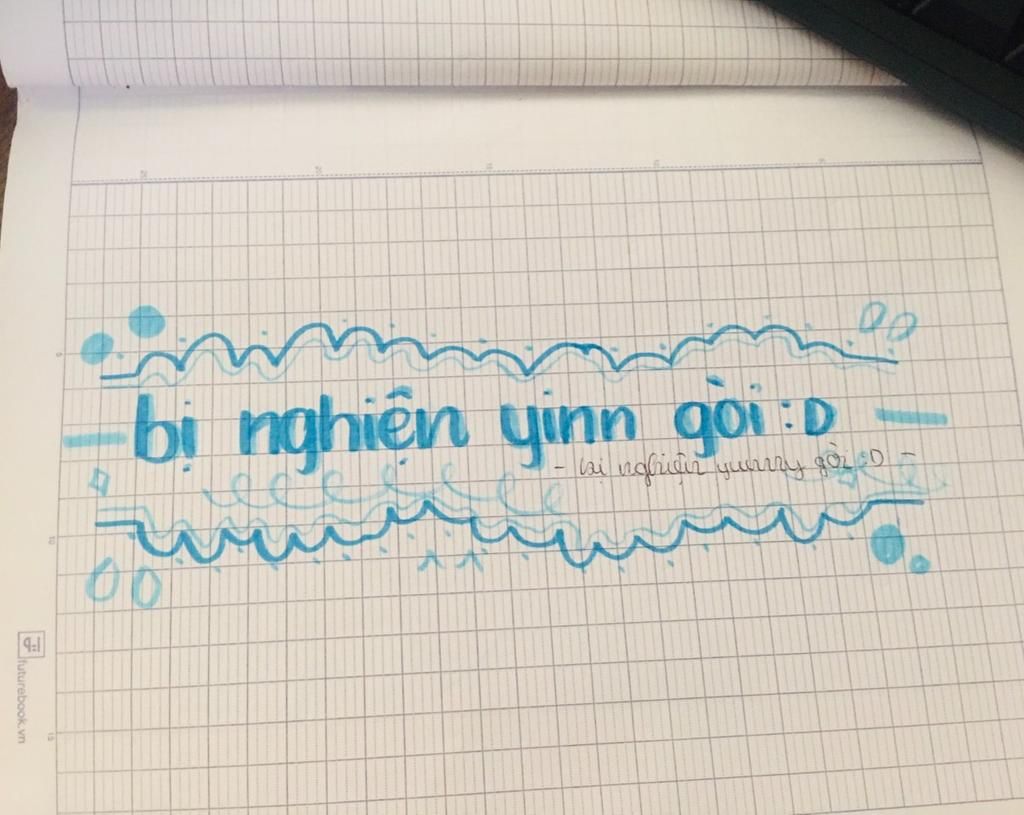 bị nghiện yinn gòi :D
- lại nghiện yunnry gòi :D -
futurebook.vn